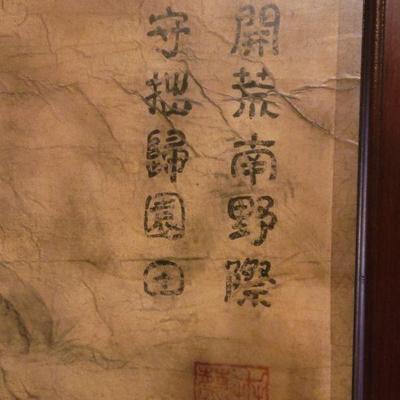 開荒南野際
守拙歸園田